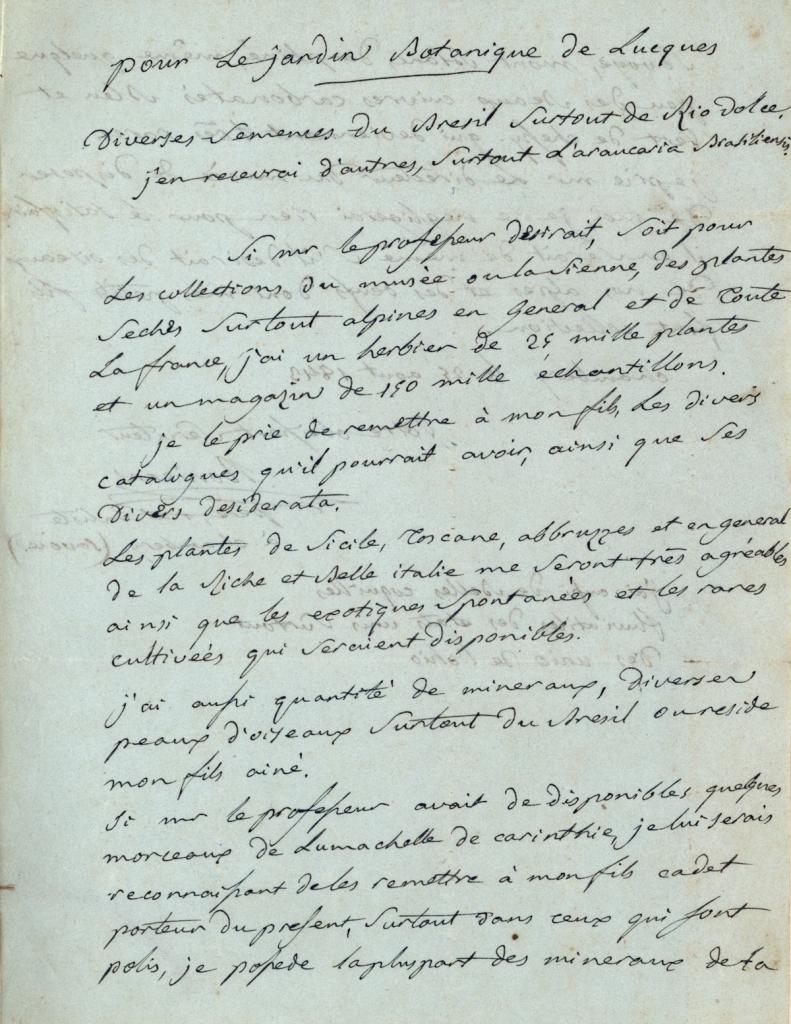 pour Le jardin Botanique de Lucques
Diverses Semences du Bresil Surtout de Rio dolce,
j'en recevrai d'autres, Surtout L'araucaria Brasiliensis
Si mr le professeur desirait, Soit pour
Les collections du musée ou la Sienne, des plantes
Sechés Surtout alpines en General et de Toute
La france, j'ai un herbier de 25 mille plantes
et un magazin de 150 mille échantillons.
je le prie de remettre à mon fils, Les divers
catalogues qu'il pourrait avoir, ainsi que Ses
Divers desiderata.
Les plantes de Sicile, Toscane, abbruzzes et en general
de la Riche et Belle italie me Seront très agréables
ainsi que les exotiques Spontanées et les rares
cultivées qui Seraient disponibles.
j'ai aussi quantité de mineraux, Diverses
peaux d'oiseaux Surtout du Bresil ou reside
mon fils ainé.
Si mr le professeur avait de disponibles quelques
morceaux de Lumachelle de carinthie, je lui serais
reconnaissant de les remettre à mon fils cadet
porteur du present, Surtout dans ceux qui sont
polis, je possede la pluspart des mineraux de la